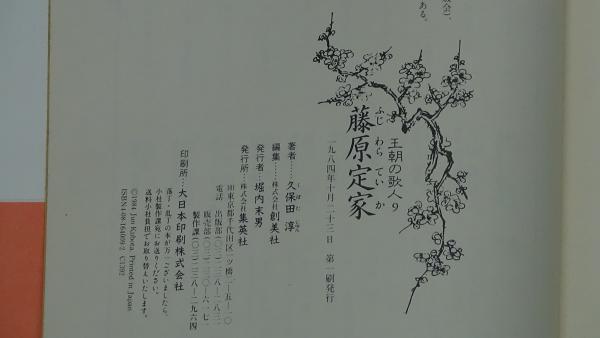 王朝の歌人9
藤原定家
ふじわらていか
一九八四年十月二十三日　第一刷発行
著者……久保田　淳
くぼた　じゅん
編集……株式会社創美社
発行者…堀内末男
発行所…株式会社集英社
東京都千代田区一ツ橋二-五-一〇
電話　出版部
販売部
製作課
印刷所…大日本印刷株式会社
落丁・乱丁の本が万一ございましたら、
小社製作課宛にお送りください。
送料小社負担でお取り替えいたします。
©1984 Jun Kubota. Printed in Japan
ある。